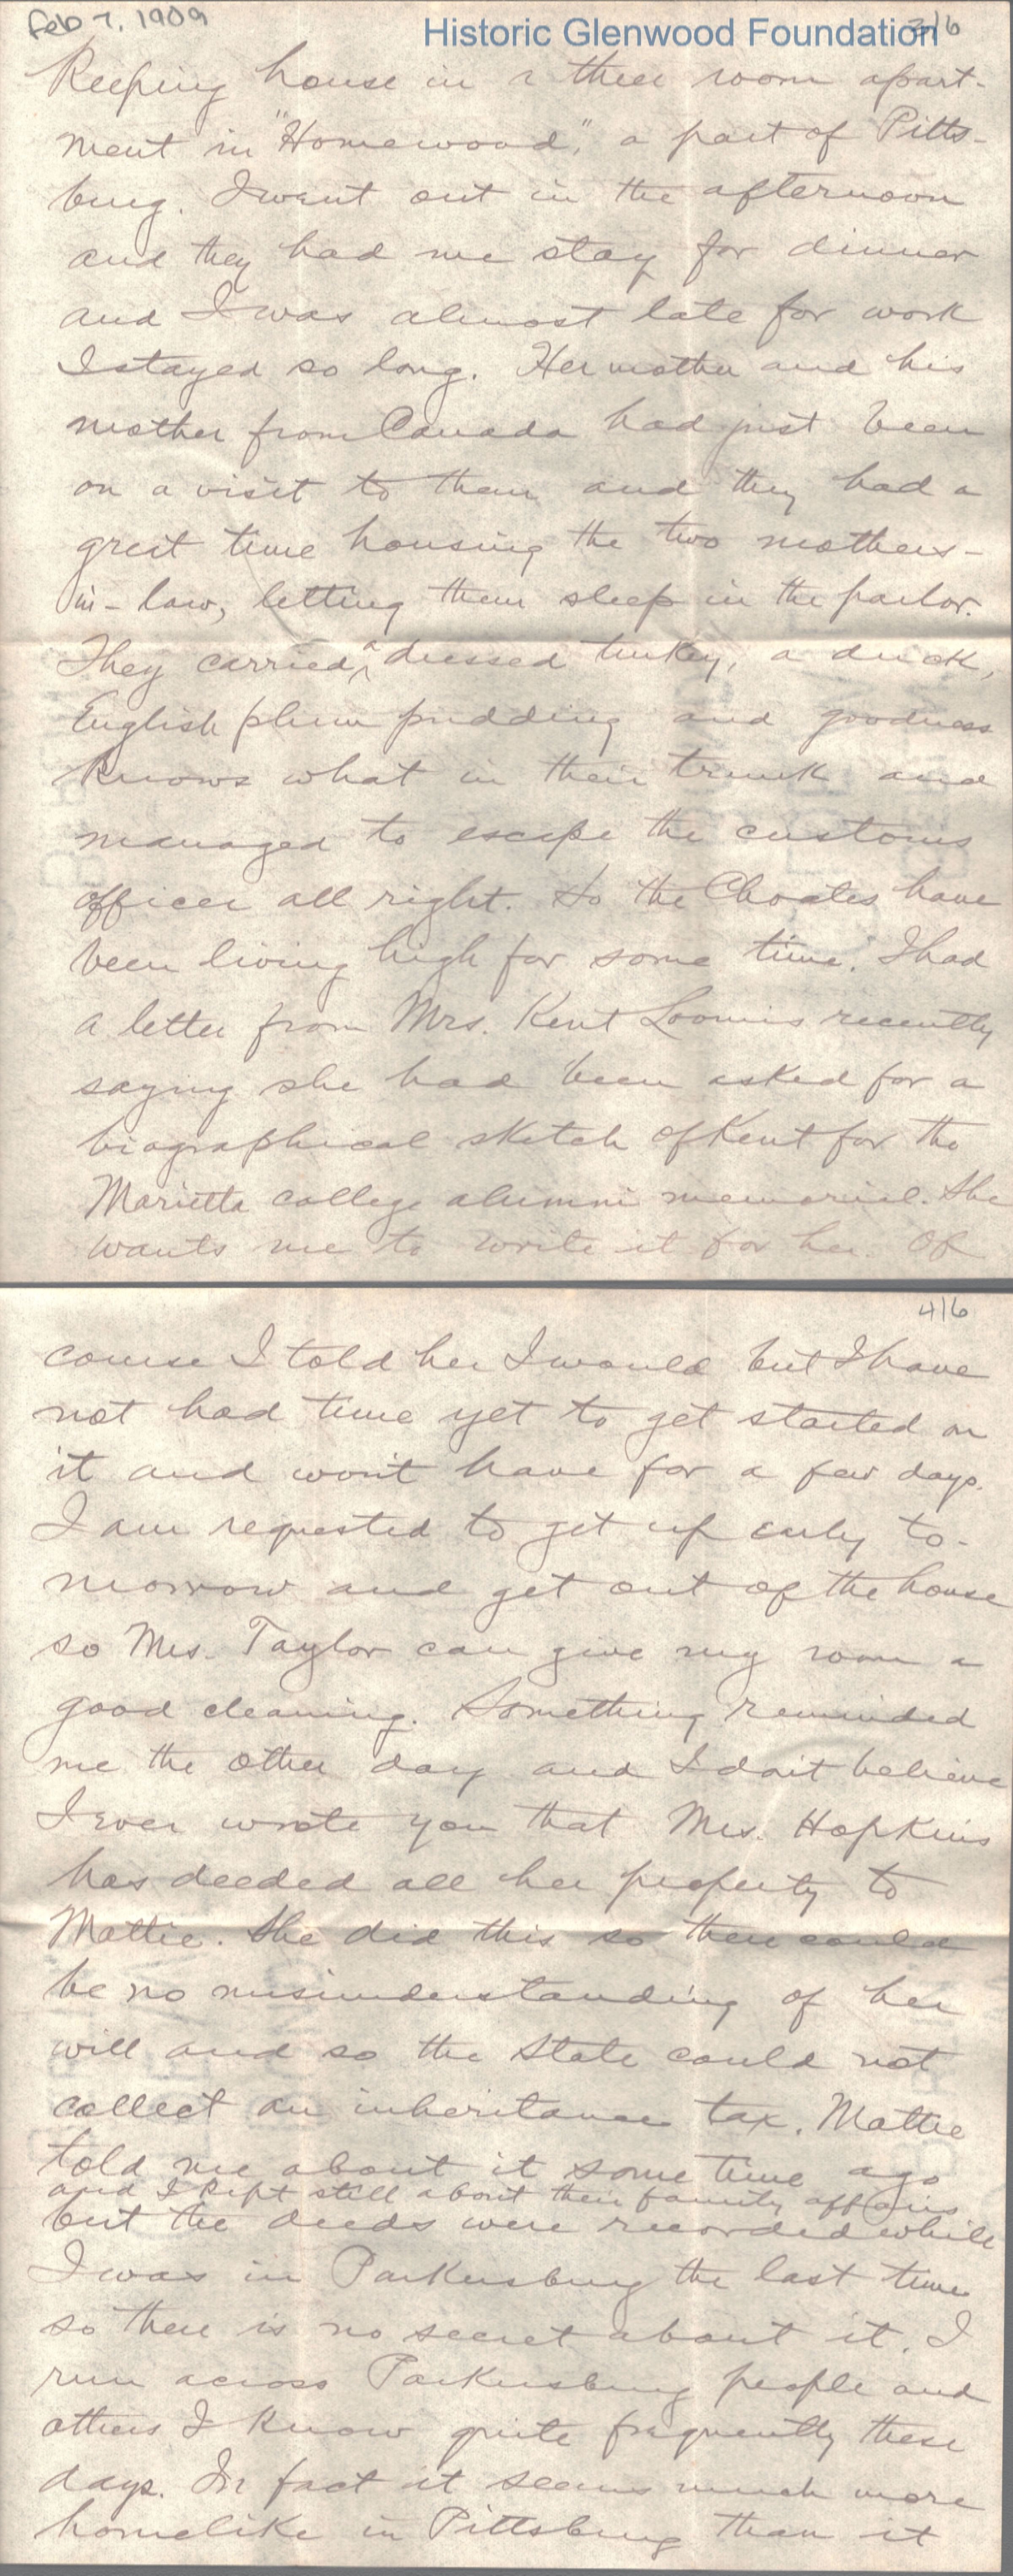 Feb 7, 1909
Historic Glenwood Foundation
3/6
Keeping house in a three room apart-
ment in "Homewood," a part of Pitts-
burg. I went out in the afternoon
and they had me stay for dinner
and I was almost late for work
I stayed so long. Her mother and his
mother from Canada had just been
on a visit to them and they had a
great time housing the two mothers-
in-law, letting them sleep in the parlor.
They carried a dressed turkey, a duck,
English plum pudding and goodness
knows what in their trunk and
managed to escape the customs
officer all right. So the Choates have
been living high for some time. I had
a letter from Mrs. Kent Loomis recently
saying she had been asked for a
biographical sketch of Kent for the
Marietta college alumni memorial. She
wants me to write it for her. Of
4/6
course I told her I would but I have
not had time yet to get started on
it and won't have for a few days.
I am requested to get up early to-
morrow and get out of the house
so Mrs. Taylor can give my room a
good cleaning. Something reminded
me the other day and I don't believe
I ever wrote you that Mrs. Hopkins
has deeded all her property to
Mattie. She did this so there could
be no misunderstanding of her
will and so the State could not
collect an inheritance tax. Mattie
told me about it some time ago
and I kept still about their family affairs
but the deeds were recorded while
I was in Parkersburg the last time
so there is no secret about it. I
run across Parkersburg people and
others I know quite frequently these
days. In fact it seems much more
homelike in Pittsburg than it